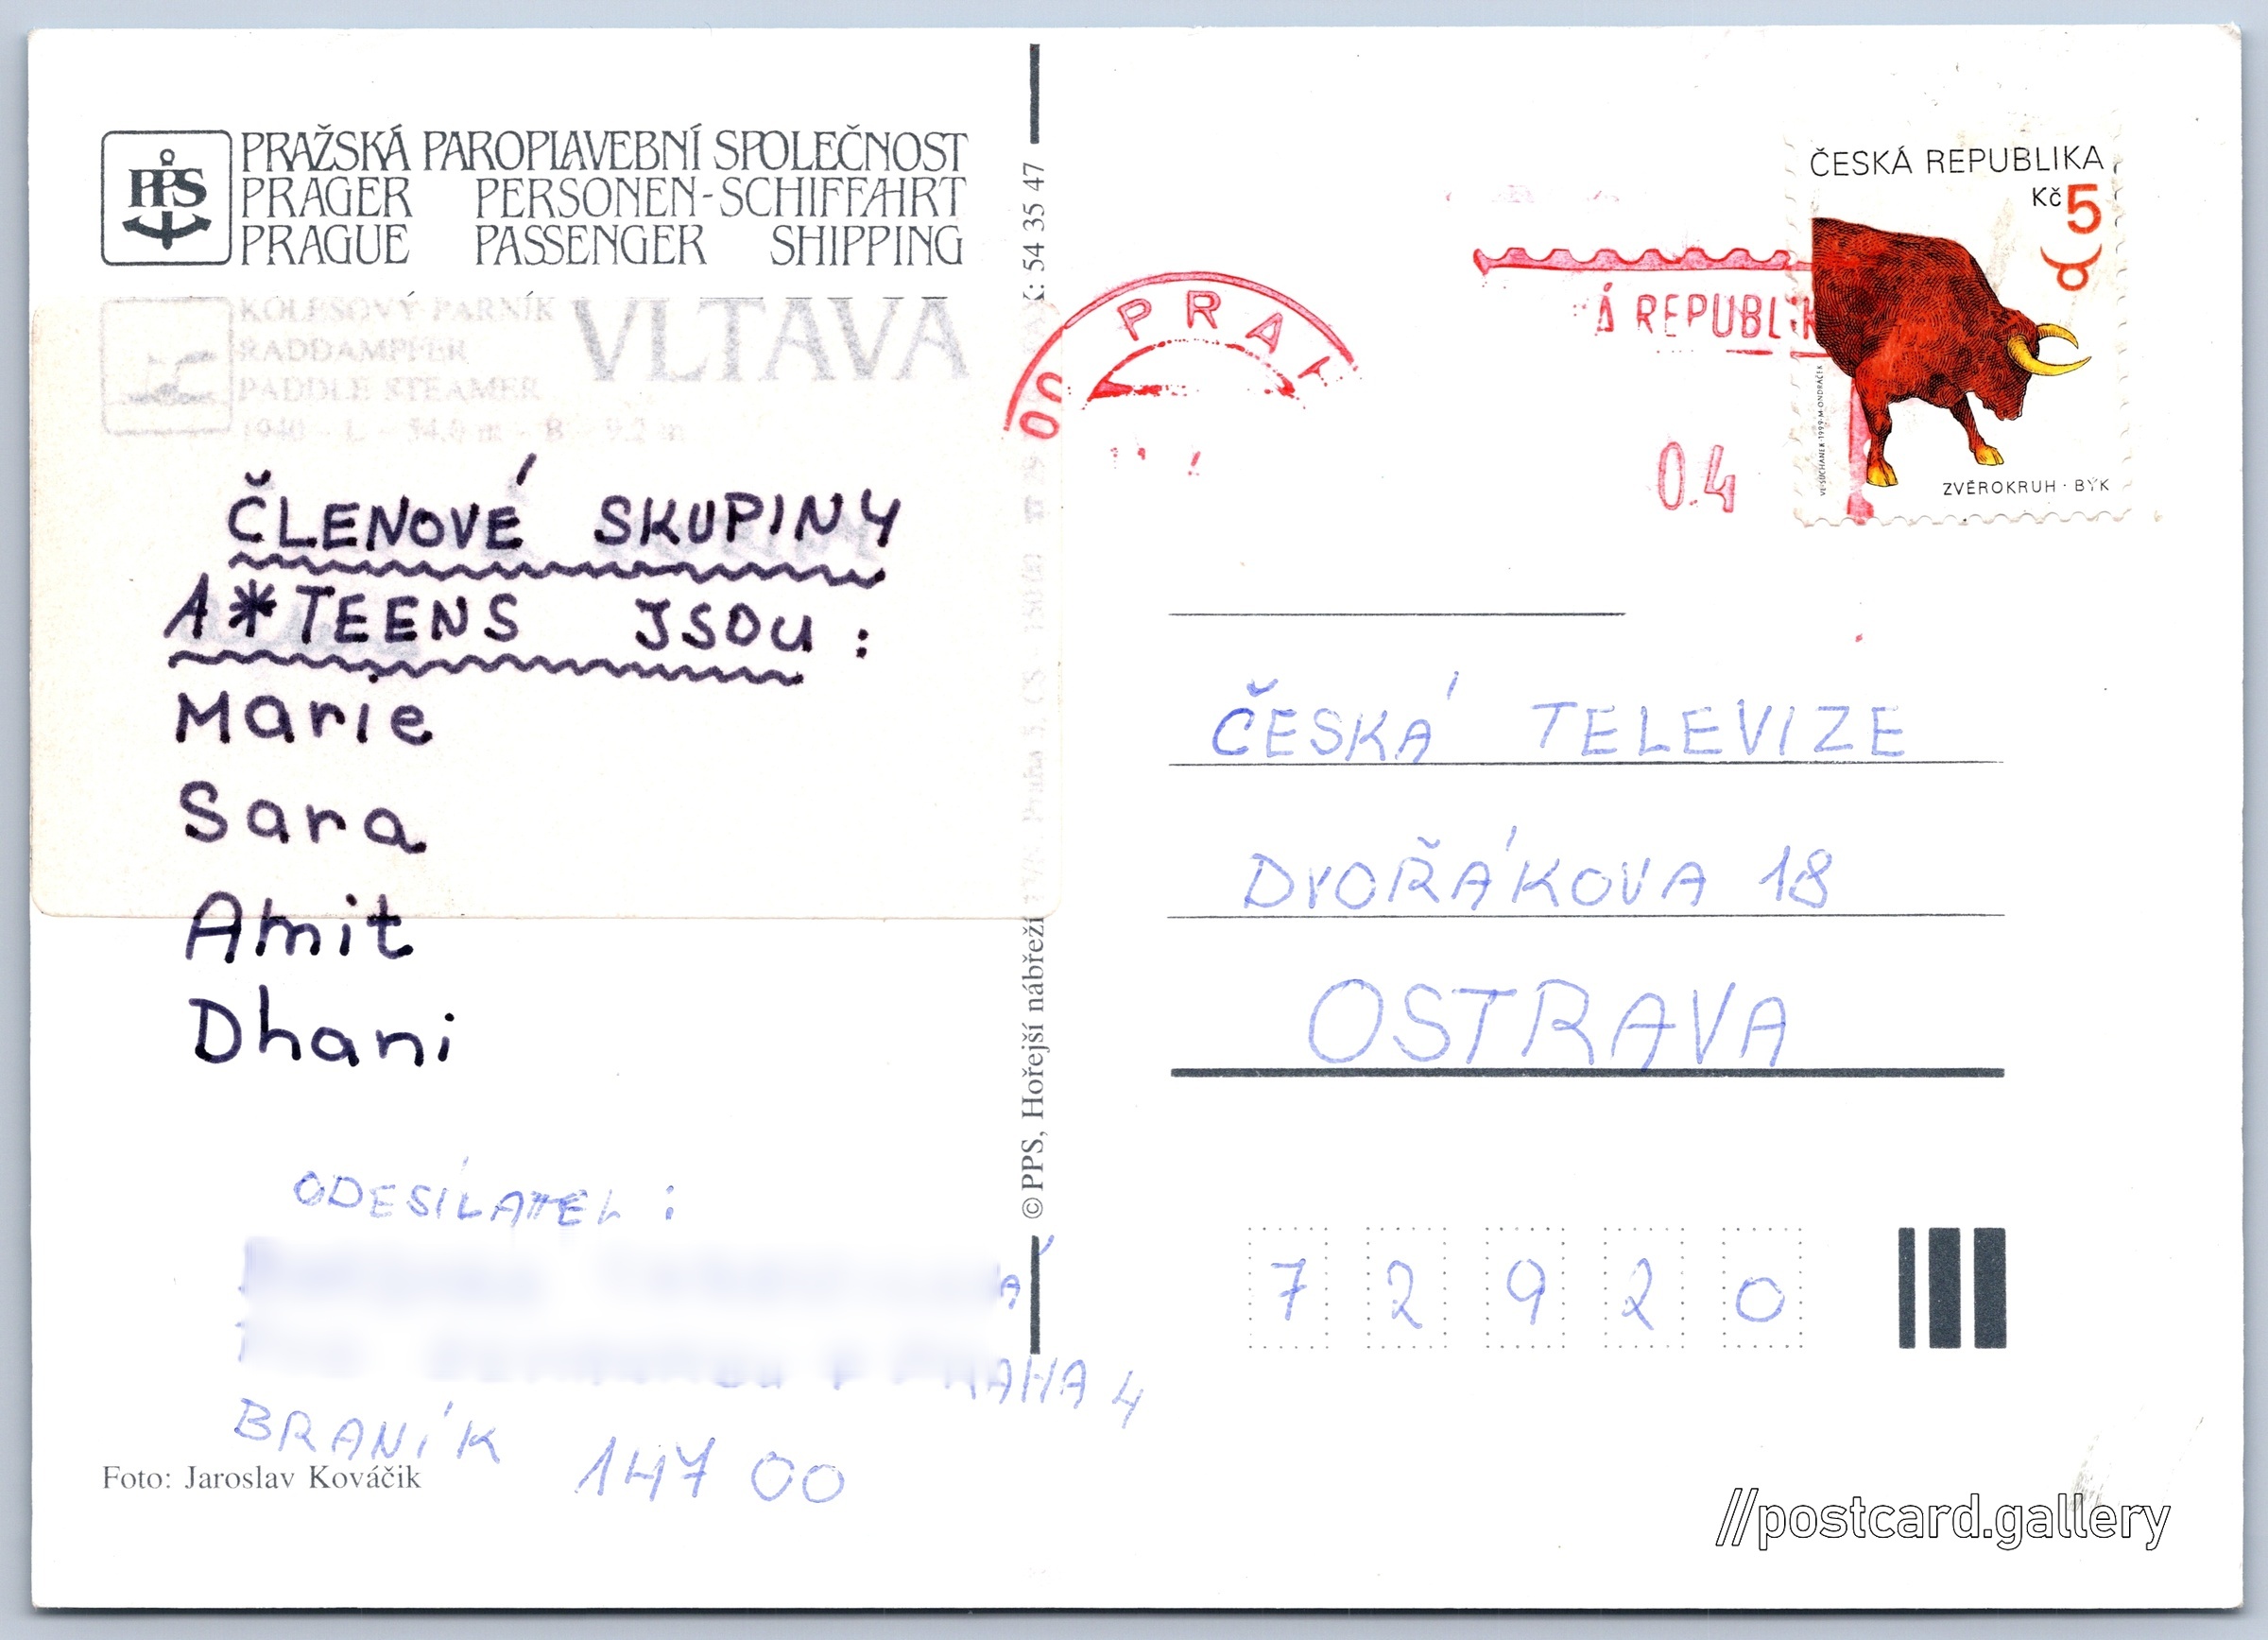 PRAŽSKÁ PAROPLAVEBNÍ SPOLEČNOST
PRAGER PERSONEN-SCHIFFAHRT
PRAGUE PASSENGER SHIPPING
PPS
KOLESOVÝ PARNÍK
RADDAMPFER
PADDLE STEAMER
VLTAVA
1940 - L - 54.0 m - B - 9.2 m
ČLENOVÉ SKUPINY
A*TEENS JSOU:
Marie
Sara
Amit
Dhani
ODESÍLATEL:
PRAHA 4
BRANÍK 147 00
Foto: Jaroslav Kováčik
© PPS, Hořejší nábřeží Praha 5, ČS
K: 54 35 47
PRA
Á REPUBLIK
04
ČESKÁ REPUBLIKA
Kč 5
ZVĚROKRUH · BÝK
ČESKÁ TELEVIZE
DVOŘÁKOVA 18
OSTRAVA
72920
//postcard.gallery